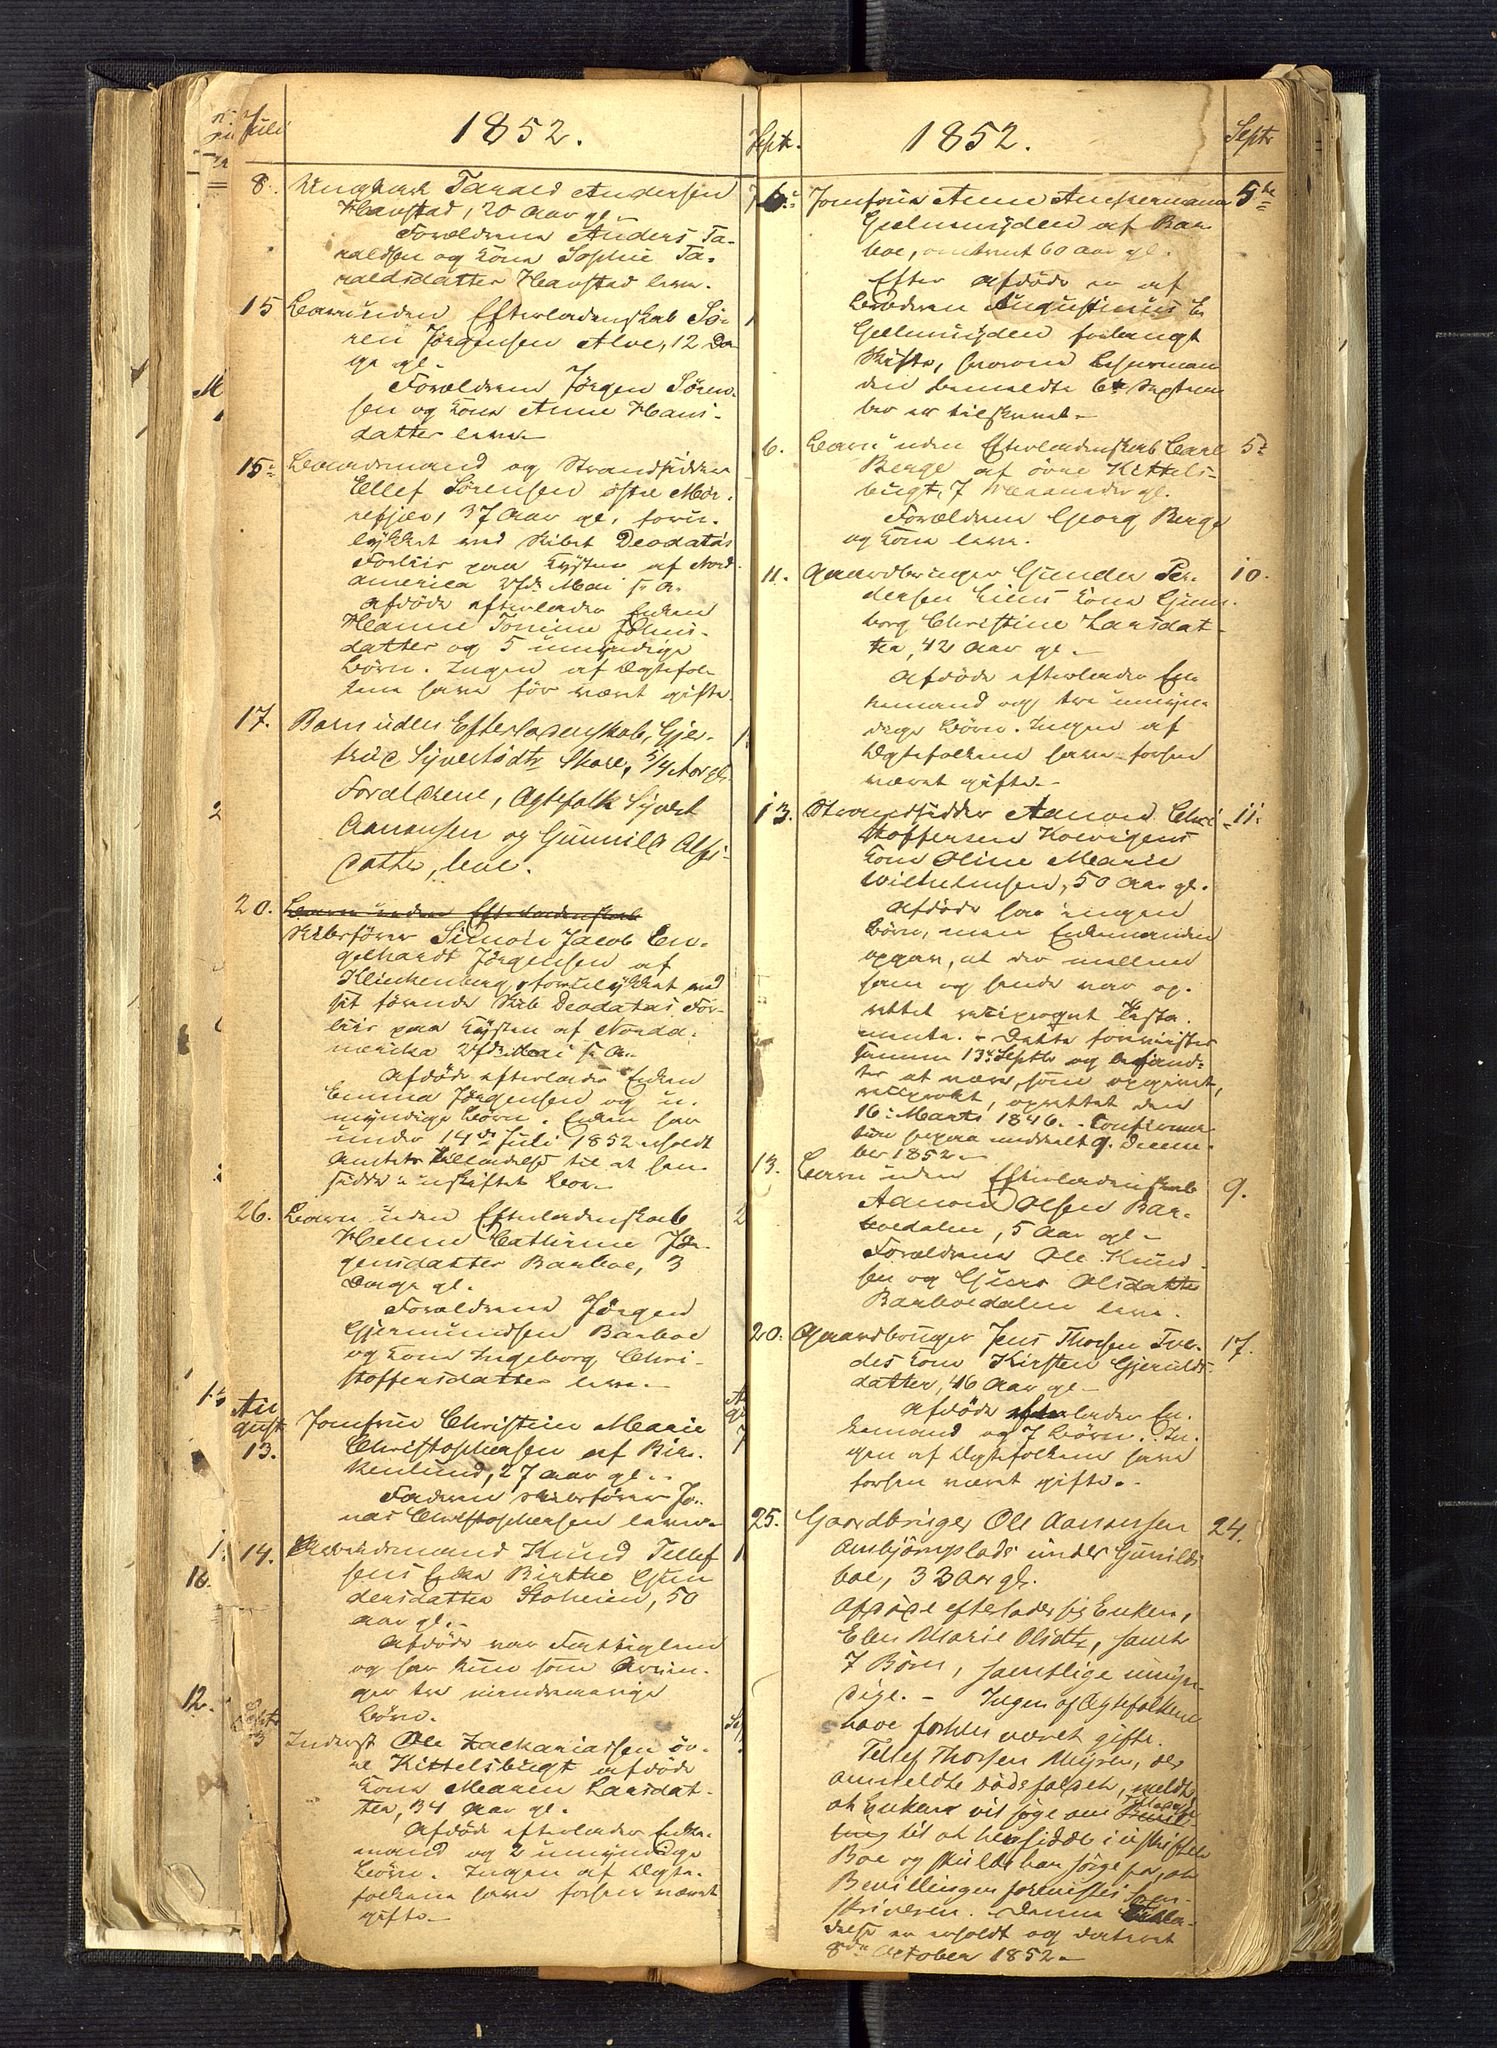 Juli
1852.
8. Ungkarl Tarald Andersen
Havstad, 20 Aar gl.
Forældrene Anders Ta-
raldsen og Kone Sophie Ta-
raldsdatter Havstad leve.
15 Barn uden Efterladenskab Sø-
ren Jørgensen Alve, 12 Da-
ge gl.
Forældrene Jørgen Søren-
sen og Kone Anne Hans-
datter leve.
15. Baadsmand og Strandsidder
Ellef Sørensen østre Mør-
refjær, 37 Aar gl, foru-
lykket med Skibet Deodatas
Forliis paa Kysten af Nord-
america 2den Mai s. A.
Afdøde efterlader Enken
Hanne Tomine Jens-
datter og 5 umyndige
Børn. Ingen af Ægtefol-
kene have før været gifte.
17. Barn uden Efterladenskab, Gjer-
trud Syvertsdtr Skare, 5/4 Aar gl.
Forældrene, Ægtefolk Syvert
Aanonsen og Gunnild Alfs-
datter, leve.
20. Barn uden Efterladenskab
Skibsfører Simon Jacob En-
gelhardt Jørgensen af
Klinkenberg, forulykket med
sit førende Skib Deodatas For-
liis paa Kysten af Norda-
merika 2den Mai s. A.
Afdøde efterlader Enken
Emma Jørgensen og u-
myndige Børn. Enken har
under 14de Juli 1852 erholdt
Amtets Tilladelse til at hen-
sidde i uskiftet Bo.
26. Barn uden Efterladenskab
Helene Cathrine Jør-
gensdatter Barboe, 3
Dage gl.
Forældrene Jørgen
Gjermundsen Barboe
og Kone Ingeborg Chri-
stoffersdatter leve.
Au
gust
13. Jomfru Christine Marie
Christophersen af Bir-
kenlund, 27 Aar gl.
Faderen Skibsfører Jo-
nas Christophersen lever.
14. Arbeidsmand Knud Tellef
sens Enke Birthe Gun
dersdatter Stoheien, 50
Aar gl.
Afdøde var Fattiglem
og har kun som Arvin-
ger tre mindreaarige
Børn.
Septr
3 Inderst Ole Zachariassen øv-
re Kittelsbugt afdøde
Kone Maren Larsdat-
ter, 34 Aar gl.
Afdøde efterlader Enke-
mand og 2 umyndige
Børn. Ingen af Ægte-
folkene have forhen været
gifte.
Septr.
1852.
Septr
6. Jomfru Anne
Gjelmuyden af Bar
boe, omtrent 60 Aar gl. 5te
Efter Afdøde er af
Broderen Augustinus
Gjelmuyden forlangt
Skifte, hvorom
den bemeldte 6te Septem
ber er tilskrevet.
6. Barn uden Efterladenskab Carl 5te
Berge af øvre Kittels-
bugt, 7 Maaneder gl.
Forældrene Georg Berge
og Kone leve.
11. Gaardbruger Gunder Pe- 10.
dersen Kone Gun-
borg Christine Larsdat-
ter, 42 Aar gl.
Afdøde efterlader En
kemand og tre umyn-
dige Børn. Ingen af
Ægtefolkene have forhen
været gifte.
13. Strandsidder Aanon Chri- 11.
stoffersen
Kone Oline Marie
Wilhelmsen, 50 Aar gl.
Afdøde har ingen
Børn, men Enkemanden
opgav, at der mellem
ham og hende var op-
rettet reciproqut Testa-
mente. - Dette forevistes
samme 13de Septbr og befand-
tes at være, som opgivet,
reciprokt, oprettet den
16. Marts 1846. Confirma-
tion herpaa meddeelt 9. Decem-
ber 1852.
13. Barn uden Efterladenskab 9.
Aanon Olsen Bar-
boedalen, 5 Aar gl.
Forældrene Ole Knud-
sen og Olsdatter
Barboedalen leve.
20. Gaardbruger Jens Thorsen Tve- 17.
des Kone Kirsten Gjerulds-
datter, 46 Aar gl.
Afdøde efterlader En-
kemand og 7 Børn. In-
gen af Ægtefolkene have
forhen været gifte.
25. Gaardbruger Ole Aanonsen 24.
Ansbjørnplads under Gunilds
boe, 33 Aar gl.
Afdøde efterlader sig Enken,
Elen Marie Olsdtr, samt
7 Børn, samtlige umyn-
dige. - Ingen af Ægtefolkene
have forhen været gifte.
Tellef Thorsen Myren, der
anmeldte Dødsfaldet, meldte
at Enken vil søge om Tilladelse
til at hensidde i uskiftet
Boe og skulde han sørge for, at
Bevillingen forevistes Sor-
enskriveren. - Denne Tilla-
delse er erholdt og dateret
8de October 1852.